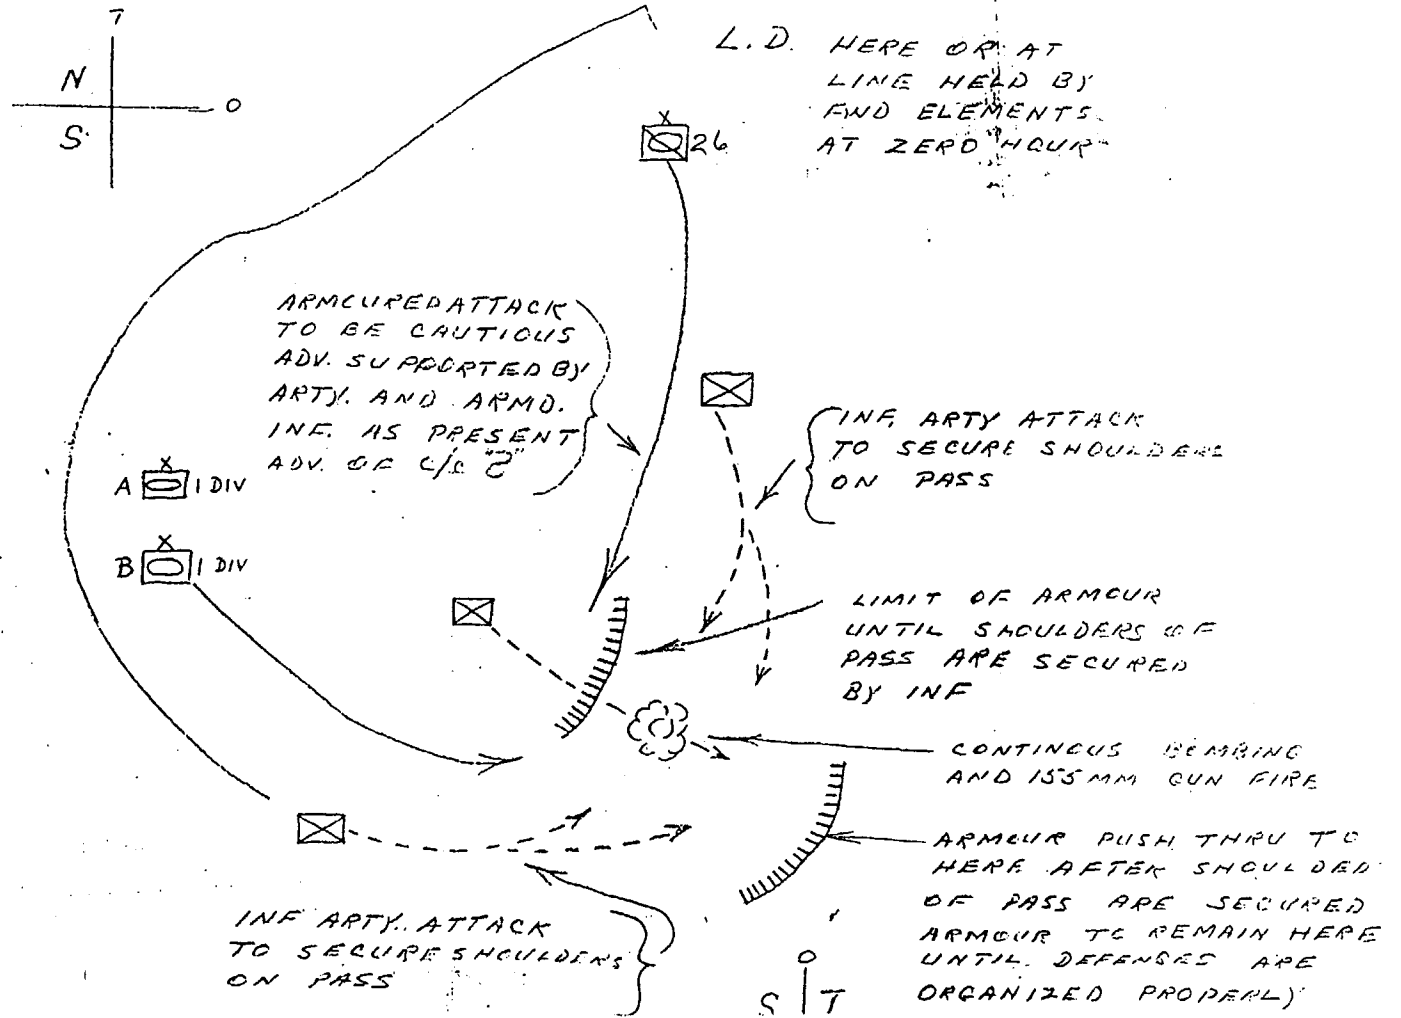 T
N
O
S
L.D. HERE OR AT
LINE HELD BY
FWD ELEMENTS
AT ZERO HOUR
26
ARMOURED ATTACK
TO BE CAUTIOUS
ADV. SUPPORTED BY
ARTY. AND ARMD.
INF. AS PRESENT
ADV. OF C/C
INF. ARTY ATTACK
TO SECURE SHOULDERS
ON PASS
A 1 DIV
B 1 DIV
LIMIT OF ARMOUR
UNTIL SHOULDERS OF
PASS ARE SECURED
BY INF
CONTINOUS BOMBING
AND 155MM GUN FIRE
ARMOUR PUSH THRU TO
HERE AFTER SHOULDED
OF PASS ARE SECURED
ARMOUR TO REMAIN HERE
UNTIL DEFENSES ARE
ORGANIZED PROPERLY
INF ARTY. ATTACK
TO SECURE SHOULDERS
ON PASS
O
S T